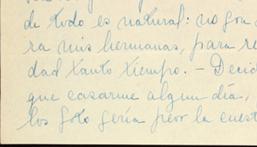 de todo es natural: no son
ra mis hermanas, para re
dad tanto tiempo. - Decid
que casarme algun día,
los solo sería peor la cuest